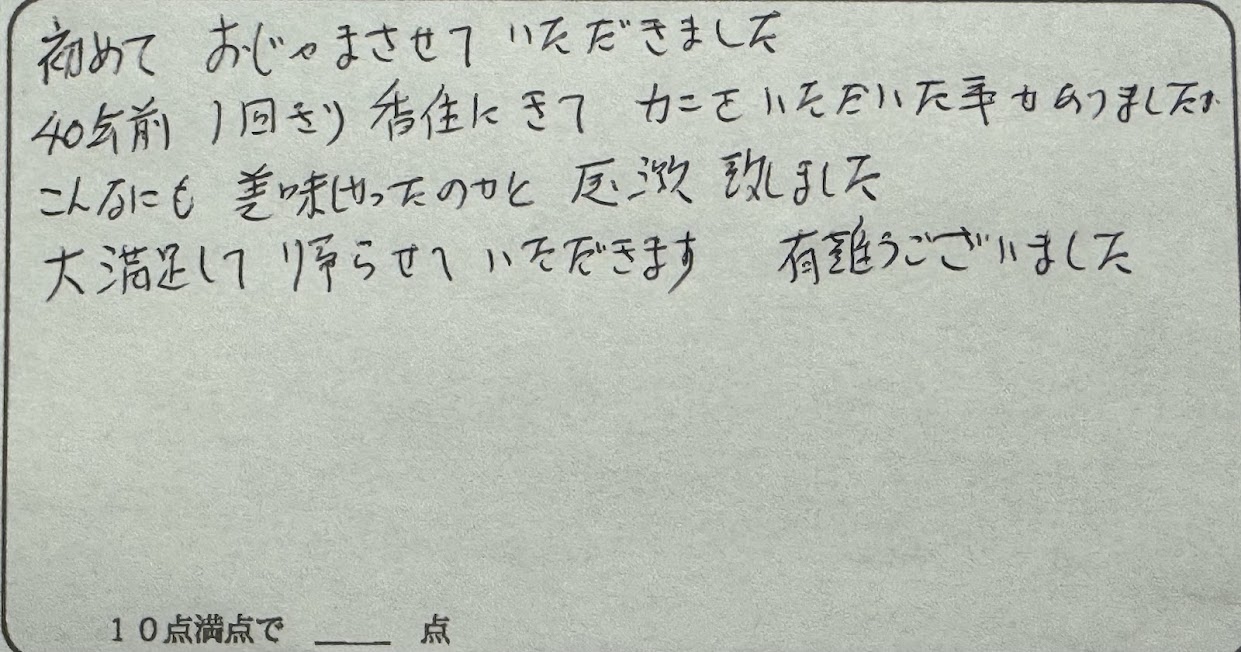 初めて おじゃまさせて いただきました
40年前 1回きり 香住にきて カニを いただいた事もありましたが
こんなにも 美味しかったのかと 感激 致しました
大満足して 帰らせて いただきます 有難うございました
10点満点で ____ 点